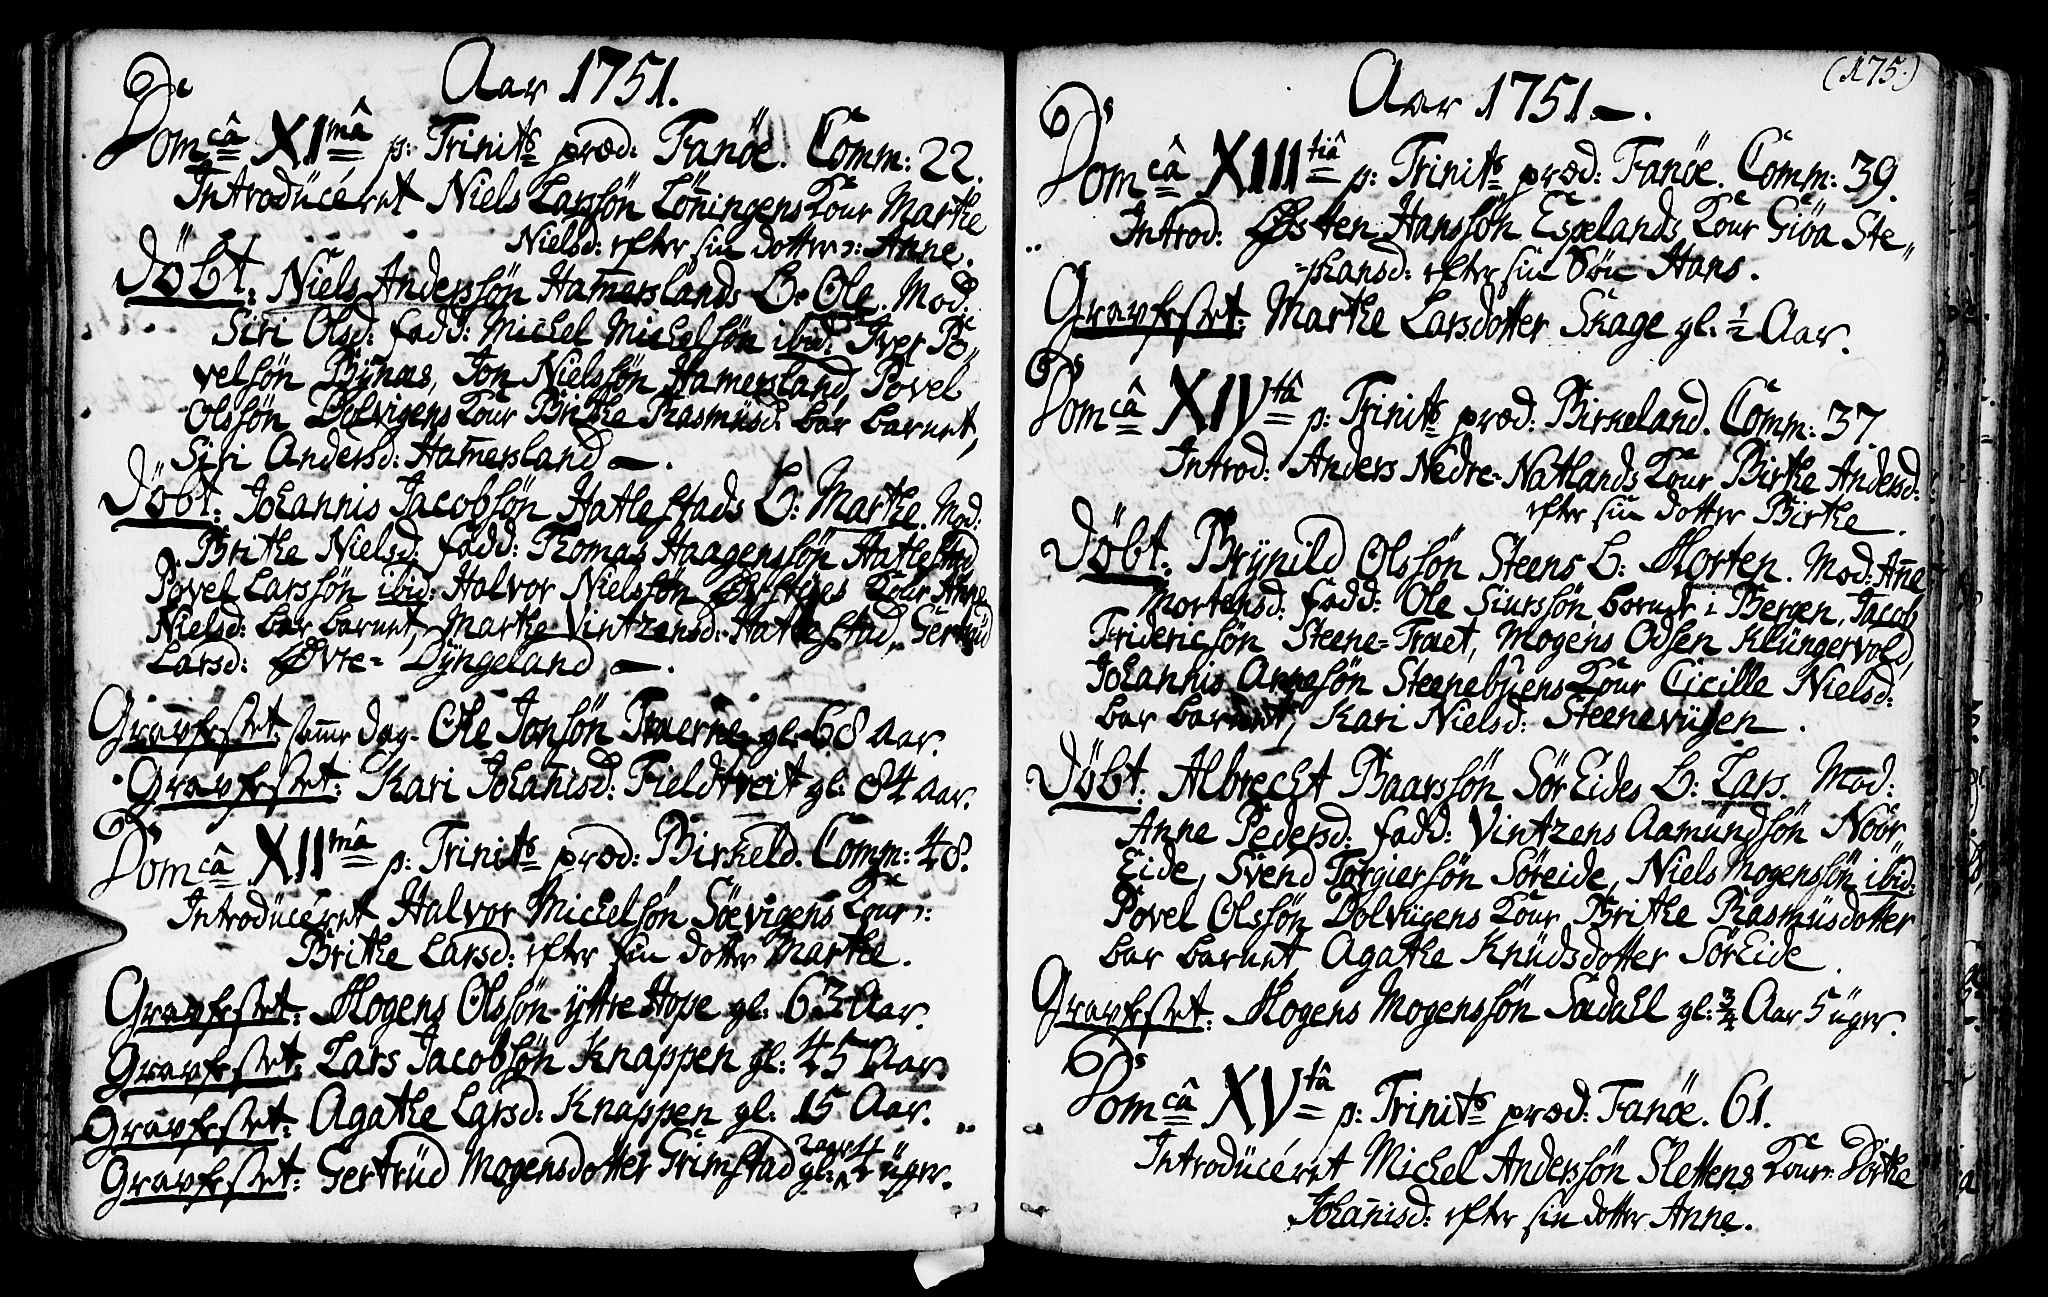 Aar 1751.
Domcâ XImâ p: Trinits præd: Fanöe. Comm: 22.
Introdücéret Niels Larssön Löningens Kone Marthe
Nielsd: efter sin dotter: Anne.
Döbt: Niels Anderssön Hamerslands B: Ole. Mod:
Siri Olsd: fadd: Michel Michelsön ibid: Iver Po-
velsön Bÿnæs, Jon Nielssön Hamersland, Povel
Olssön Dolvigens Kone Brithe Rasmusd: bar barnet,
Siri Andersd: Hamersland —.
Döbt: Johannis Jacobsön Hatlestads B: Marthe. Mod:
Brithe Nielsd: fadd: Thomas Haagenssön Hatlestad
Povel Larssön ibid: Halvor Nielssön Kone Anne
Nielsd: bar barnet, Marthe Vintzensd: Hatlestad, Gertrüd
Larsd: Øvre- Dÿngeland —.
Gravfæstet: samme dag Ole Jonsön Traerne gl: 68 aar.
Gravfæstet: Kari Johanisd: Fieldtveit gl: 84 aar.
Domcâ XIImâ p: Trinits præd: Birkeld. Comm: 48.
Introdücéret Halvor Michelsön Söevigens Kone:
Brithe Larsd: efter sin dotter Marthe.
Gravfæstet: Mogens Olssön ÿttre Hope gl: 63 Aar.
Gravfæstet: Lars Jacobsön Knappen gl: 45 Aar.
Gravfæstet: Agathe Larsd: Knappen gl: 15 Aar.
Gravfæstet: Gertrüd Mogensdotter Grimstad gl: üger.
(175.)
Aar 1751 —.
Domcâ XIIItiâ p: Trinits præd: Fanöe. Comm: 39.
Introd: Østen Hanssön Espelands Kone Giöa Ste-
-phansd: efter sin Sön Hans.
Gravfæstet: Marthe Larsdotter Skage gl: ½ Aar.
Domcâ XIVtâ p: Trinits præd: Birkeland. Comm: 37.
Introd: Anders Nedre-Natlands Kone Birthe Andersd:
efter sin dotter Birthe.
Döbt: Brÿnild Olssön Steens B: Morten. Mod: Anne
Mortensd: fadd: Ole Siurssön i Bergen, Jacob
Fridericsön Steene-Træet, Mogens Odsen Klüngervold,
Johannis Arnesön Steenebÿens Kone Cicille Nielsd:
bar barnet, Kari Nielsd: Steenevügen.
Döbt: Albrecht Baarssön Sör Eides B: Lars. Mod:
Anne Pedersd: fadd: Vintzens Aamündsön Noör-
Eide, Svend Torgiersön Söreide, Niels Mogensön ibid:
Povel Olssön Dolvügens Kone Brithe Rasmüsdotter
bar barnet Agathe Knüdsdotter Sör Eide.
Gravfæstet: Mogens Mogenssön Sædall gl: ¾ Aar 5 üger.
Domcâ XVtâ p: Trinits præd: Fanöe. 61.
Introdücéret Michel Anderssön Slettens Kone: Dorthe
Johanisd: efter sin dotter Anne.